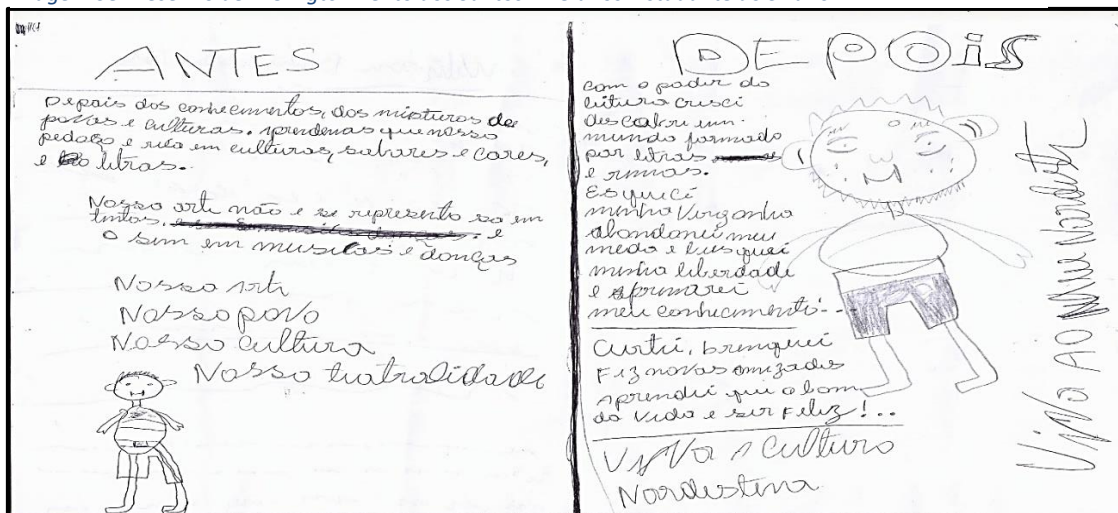 ANTES
Depois dos conhecimentos, dos misturos de
povos e culturas. Aprendemos que nosso
pedaço e rico em culturas, sabores e cores,
e letras.
Nosso arte não e se represento so em
tintos, e
o sim em musicas e donças
Nosso arte
Nosso povo
Nosso cultura
Nosso teatralidade
DEPOis
com o poder do
leitura cresci
descobri um
mundo formado
por letras
e rimas.
Esqueci
minha Vergonha
abandonei meu
medo e busquei
minha liberdade
e aprimorei
meu conhecimento!--
Curti, brinquei
Fiz novas amizades
aprendi que o bom
da Vida e ser Feliz!..
ViVa A Culturo
Nordestina
ViVa AO Nordeste